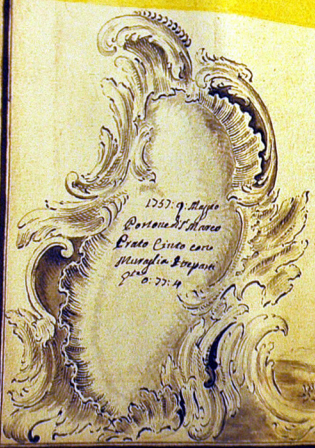 1757: 9: Maggio
Portone S. Marco
Prato Cinto con
Muraglia 3 tre parti
q.ta 0:77:4